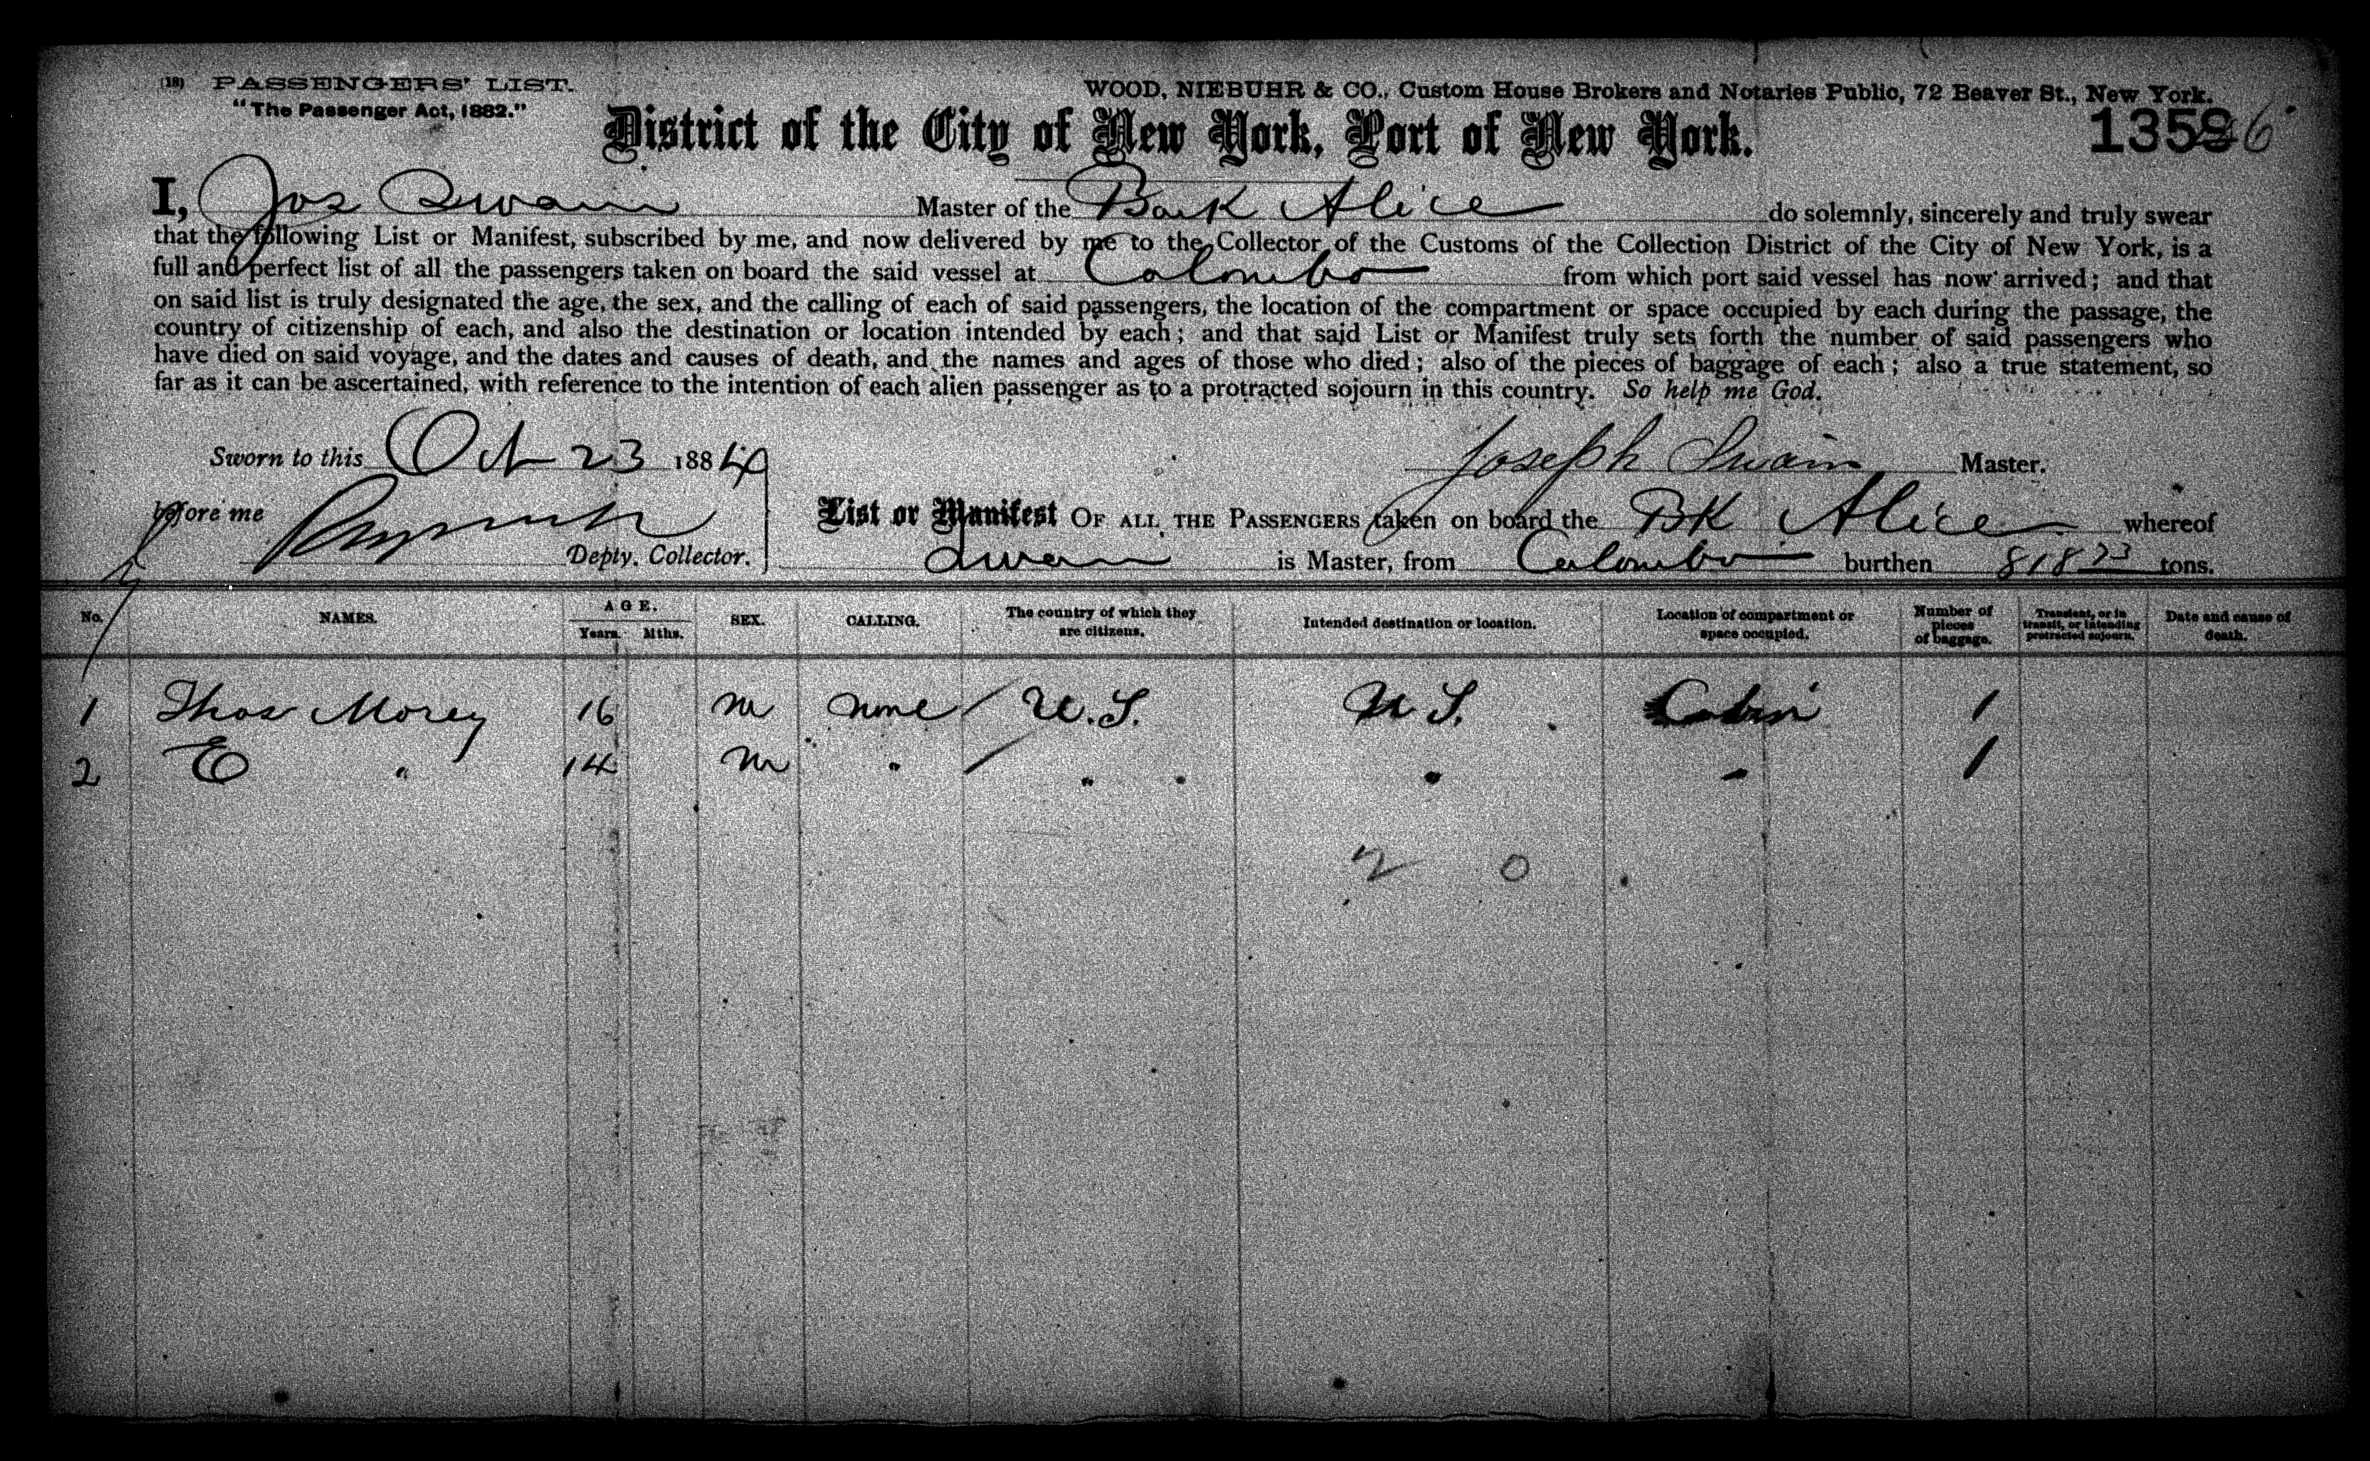 (18) PASSENGERS' LIST.
"The Passenger Act, 1882."
WOOD, NIEBUHR & CO., Custom House Brokers and Notaries Public, 72 Beaver St., New York.
District of the City of New York, Port of New York.
135 6
I, Jos Swain Master of the Bark Alice do solemnly, sincerely and truly swear
that the following List or Manifest, subscribed by me, and now delivered by me to the Collector of the Customs of the Collection District of the City of New York, is a
full and perfect list of all the passengers taken on board the said vessel at Colombo from which port said vessel has now arrived; and that
on said list is truly designated the age, the sex, and the calling of each of said passengers, the location of the compartment or space occupied by each during the passage, the
country of citizenship of each, and also the destination or location intended by each; and that said List or Manifest truly sets forth the number of said passengers who
have died on said voyage, and the dates and causes of death, and the names and ages of those who died; also of the pieces of baggage of each; also a true statement, so
far as it can be ascertained, with reference to the intention of each alien passenger as to a protracted sojourn in this country. So help me God.
Sworn to this Oct 23 1884
Joseph Swain Master.
before me
Depty. Collector.
List or Manifest OF ALL THE PASSENGERS taken on board the Bk Alice whereof
Swain is Master, from Colombo burthen 818 73 tons.
No. NAMES. AGE. Years. Mths. SEX. CALLING. The country of which they are citizens. Intended destination or location. Location of compartment or space occupied. Number of pieces of baggage. Transient, or in transit, or intending protracted sojourn. Date and cause of death.
1 Thos Morey 16 m none / U.S. U S. Cabin 1
2 E " 14 m " / " " " " 1
2 0